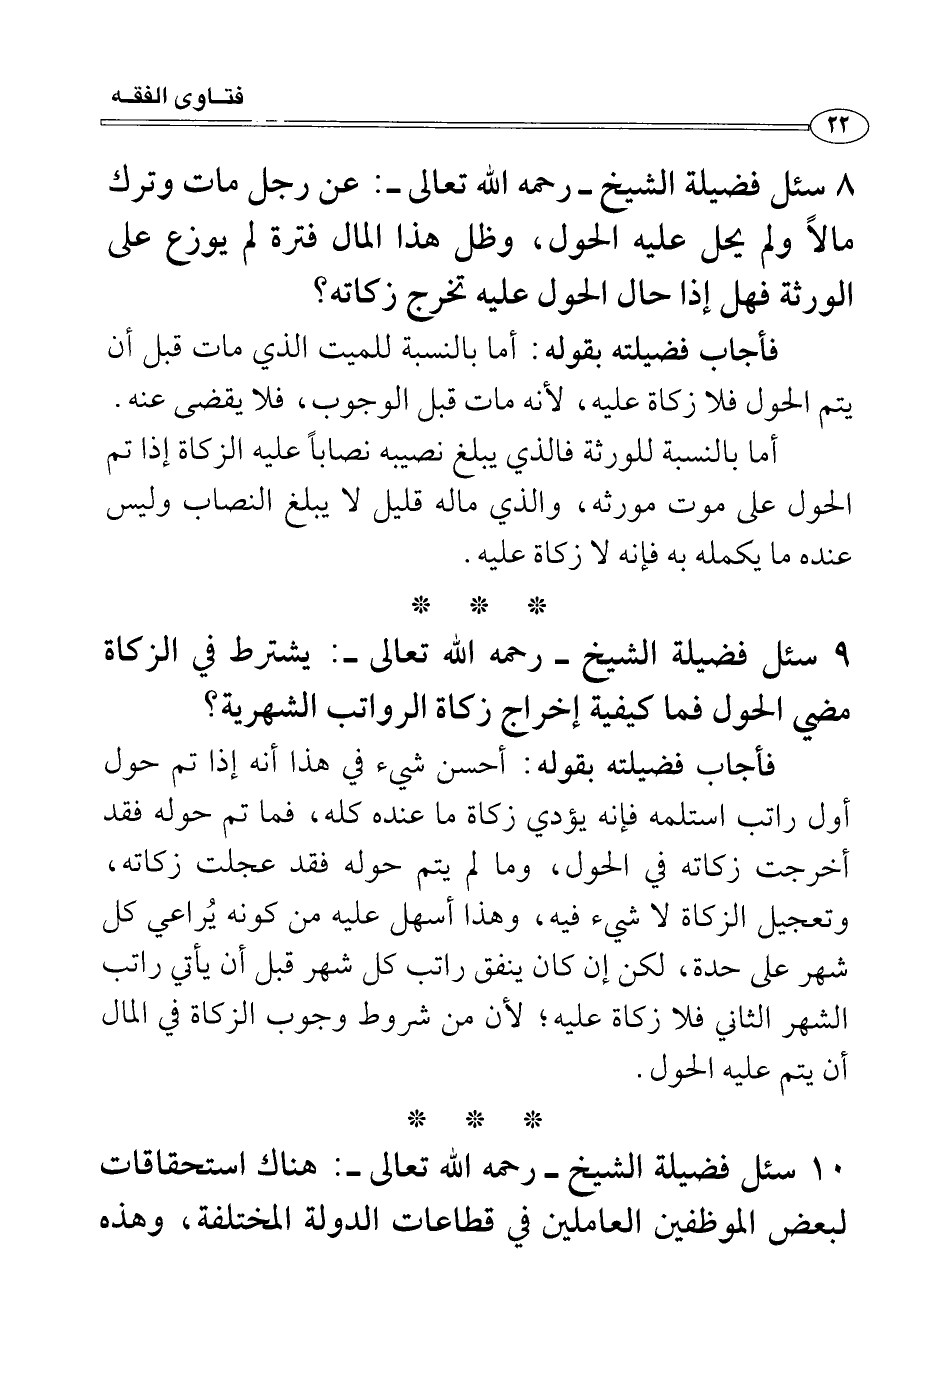 فتاوى الفقه
٢٢
٨ سئل فضيلة الشيخ ـ رحمه الله تعالى ـ: عن رجل مات وترك
مالاً ولم يحل عليه الحول، وظل هذا المال فترة لم يوزع على
الورثة فهل إذا حال الحول عليه تخرج زكاته؟
فأجاب فضيلته بقوله: أما بالنسبة للميت الذي مات قبل أن
يتم الحول فلا زكاة عليه، لأنه مات قبل الوجوب، فلا يقضى عنه.
أما بالنسبة للورثة فالذي يبلغ نصيبه نصاباً عليه الزكاة إذا تم
الحول على موت مورثه، والذي ماله قليل لا يبلغ النصاب وليس
عنده ما يكمله به فإنه لا زكاة عليه.
* * *
٩ سئل فضيلة الشيخ ـ رحمه الله تعالى ـ: يشترط في الزكاة
مضي الحول فما كيفية إخراج زكاة الرواتب الشهرية؟
فأجاب فضيلته بقوله: أحسن شيء في هذا أنه إذا تم حول
أول راتب استلمه فإنه يؤدي زكاة ما عنده كله، فما تم حوله فقد
أخرجت زكاته في الحول، وما لم يتم حوله فقد عجلت زكاته،
وتعجيل الزكاة لا شيء فيه، وهذا أسهل عليه من كونه يُراعي كل
شهر على حدة، لكن إن كان ينفق راتب كل شهر قبل أن يأتي راتب
الشهر الثاني فلا زكاة عليه؛ لأن من شروط وجوب الزكاة في المال
أن يتم عليه الحول.
* * *
١٠ سئل فضيلة الشيخ ـ رحمه الله تعالى ـ: هناك استحقاقات
لبعض الموظفين العاملين في قطاعات الدولة المختلفة، وهذه